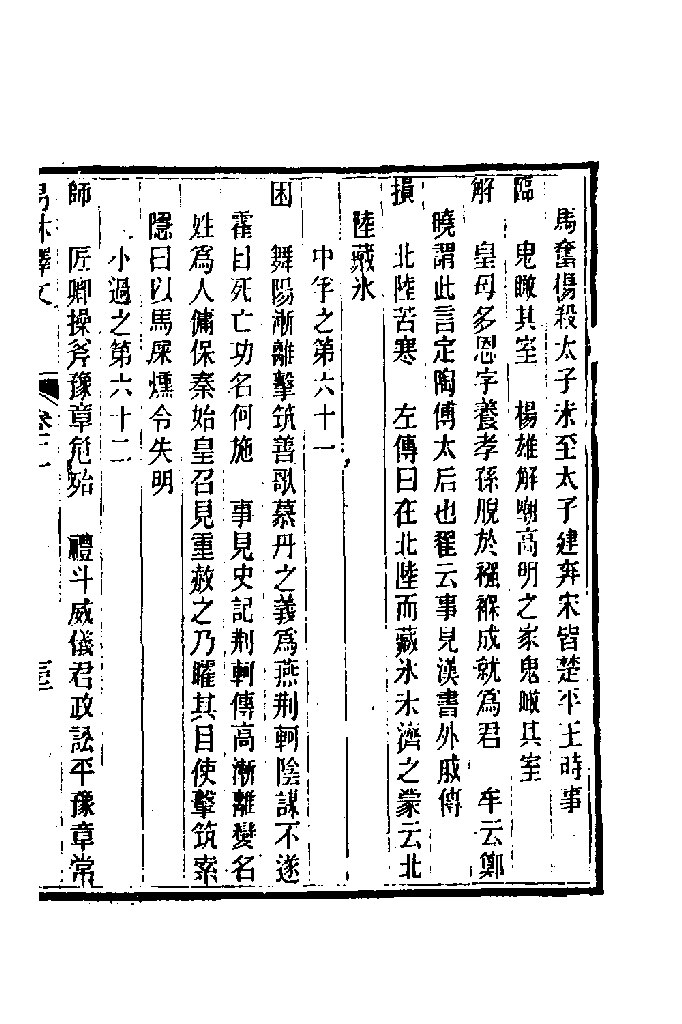 馬奮傷殺太子未至太子建奔宋皆楚平王時事
臨　鬼瞰其室　楊雄解嘲高明之家鬼瞰其室
解　皇母多恩字養孝孫脫於襁褓成就爲君　牟云鄭
曉謂此言定陶傅太后也翟云事見漢書外戚傳
損　北陸苦寒　左傳曰在北陸而藏氷未濟之蒙云北
陸藏氷
中孚之第六十一
困　舞陽漸離擊筑善歌慕丹之義爲燕荆軻陰謀不遂
霍自死亡功名何施　事見史記荆軻傳高漸離變名
姓爲人傭保秦始皇召見重赦之乃矐其目使擊筑索
隱曰以馬屎燻令失明
小過之第六十二
師　匠卿操斧豫章危殆　禮斗威儀君政訟平豫章常
易林釋文　卷二